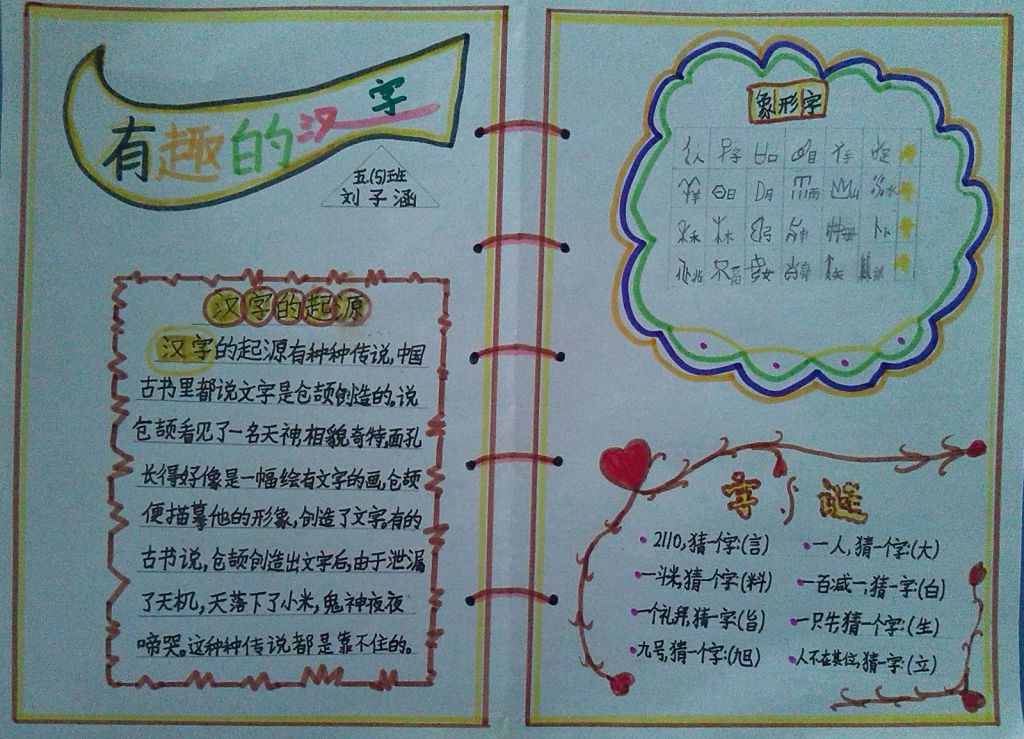 有趣的汉字
五(5)班
刘子涵
汉字的起源
汉字的起源有种种传说,中国
古书里都说文字是仓颉创造的。说
仓颉看见了一名天神,相貌奇特,面孔
长得好像是一幅绘有文字的画,仓颉
便描摹他的形象,创造了文字。有的
古书说,仓颉创造出文字后,由于泄漏
了天机,天落下了小米,鬼神夜夜
啼哭。这种种传说都是靠不住的。
象形字
人 子 口 目 手
羊 日 月 雨 山 水
禾 木 弓 册 卜
兆 女
字谜
2110,猜一个字:(言)
一人,猜一个字:(大)
一斗米,猜一个字:(料)
一百减一,猜一字:(白)
一个礼拜,猜一字:(旨)
一只牛,猜一个字:(生)
九号,猜一个字:(旭)
人不在其位,猜一字:(立)